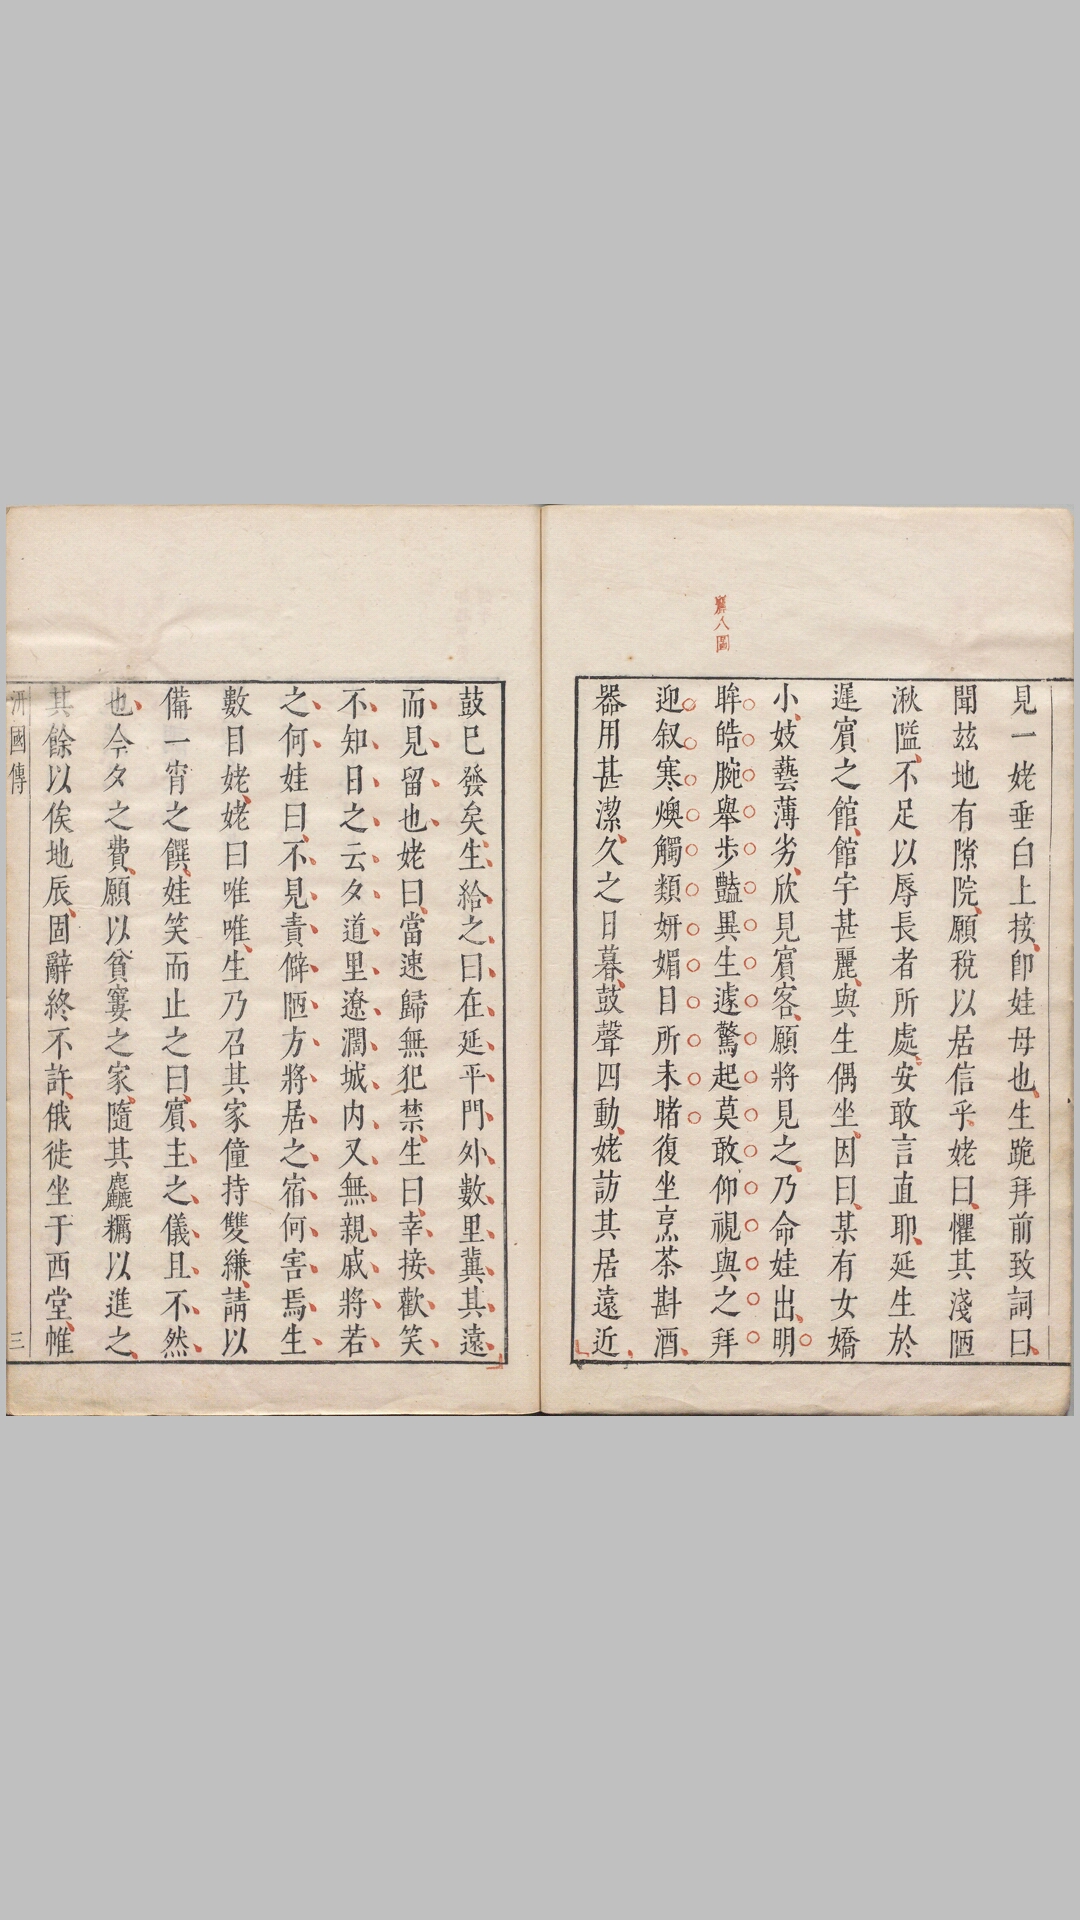 麗人圖
見一姥垂白上接卽娃母也生跪拜前致詞曰
聞玆地有隙院願稅以居信乎姥曰懼其淺陋
湫隘不足以辱長者所處安敢言直耶延生於
遲賓之館館宇甚麗與生偶坐因曰某有女嬌
小妓藝薄劣欣見賓客願將見之乃命娃出明
眸皓腕舉步豔異生遽驚起莫敢仰視與之拜
迎叙寒燠觸類妍媚目所未睹復坐烹茶斟酒
器用甚潔久之日暮鼓聲四動姥訪其居遠近
鼓已發矣生給之曰在延平門外數里冀其遠
而見留也姥曰當速歸無犯禁生曰幸接歡笑
不知日之云夕道里遼濶城内又無親戚將若
之何娃曰不見責僻陋方將居之宿何害焉生
數目姥姥曰唯唯生乃召其家僮持雙縑請以
備一宵之饌娃笑而止之曰賓主之儀且不然
也今夕之費願以貧窶之家隨其麤糲以進之
其餘以俟他辰固辭終不許俄徙坐于西堂帷
汧國傳
三